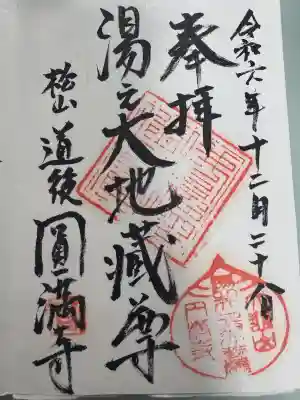 令和六年十二月二十八日
奉拝
湯之大地蔵尊
松山 道後 圓満寺